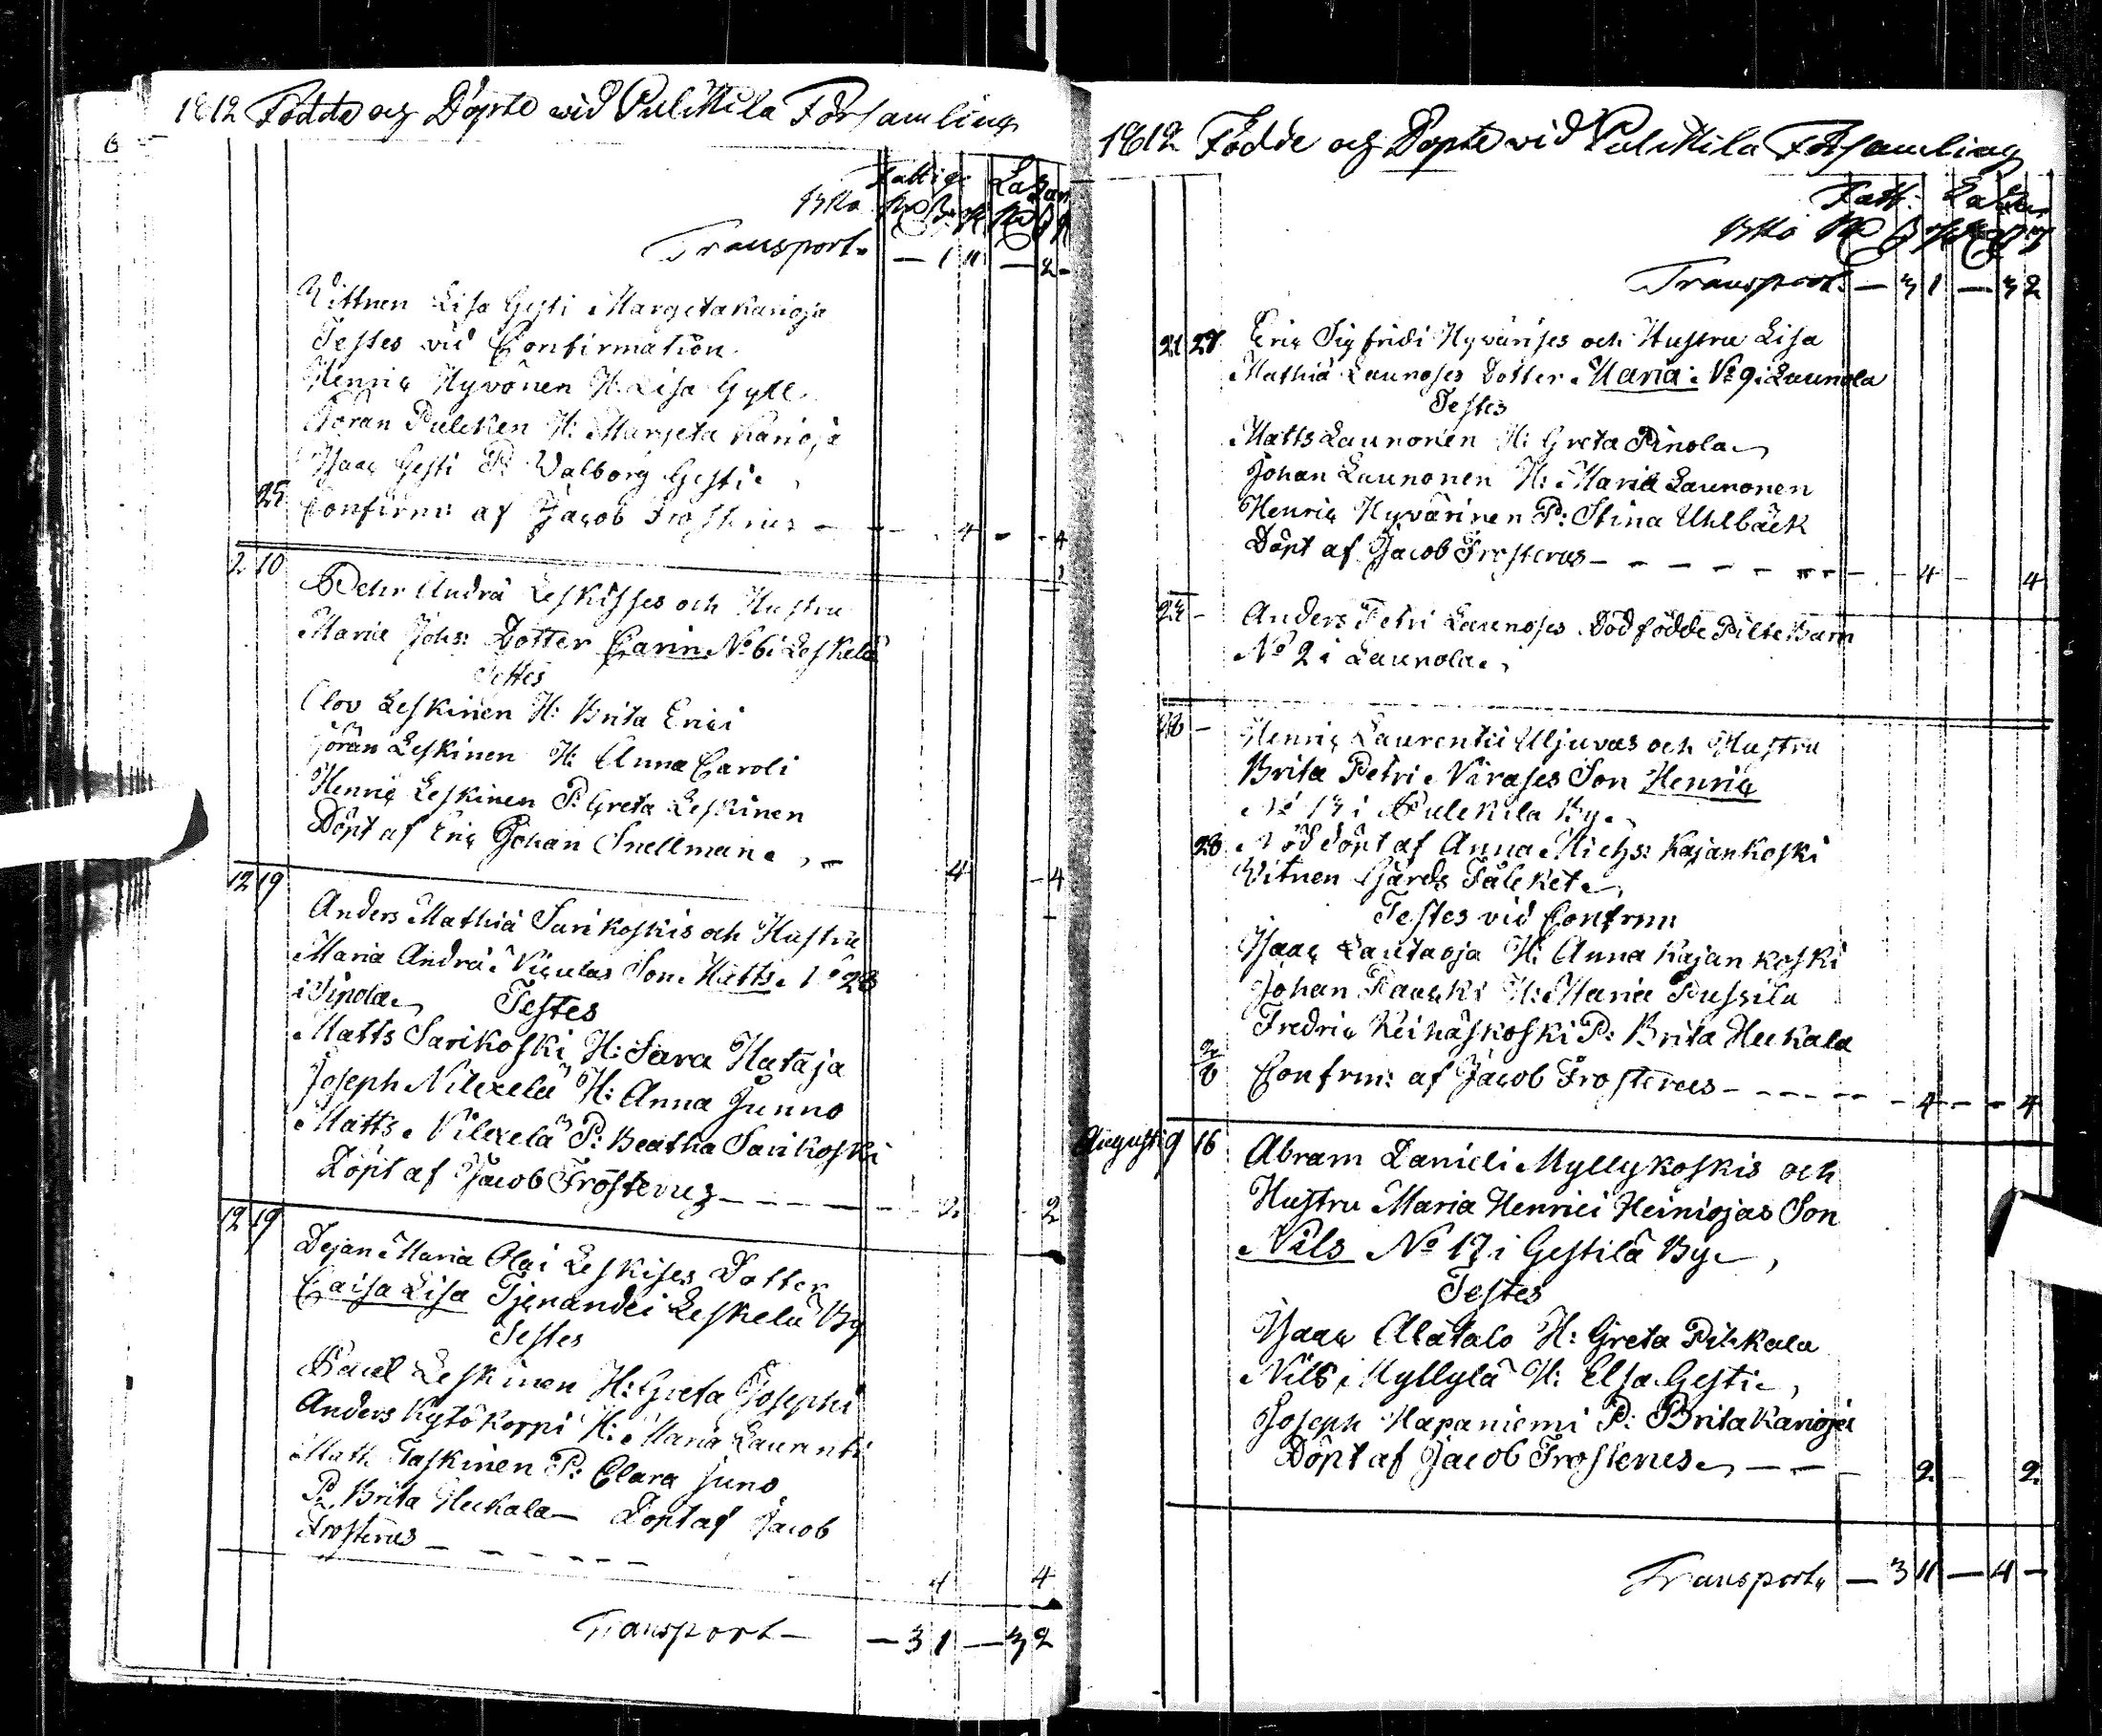 1812 Födde och Döpte wid Pulkkila Församling
6
Fattig: Lazar
BKo Rd β rst Rd β r
Transport. — 1 11 — 2 -
Vittnen Lisa Gesti Margeta Karioja
Testes vid Confirmation.
Henric Hyvönen H. Lisa Gyll
Jöran Pulcken H: Margeta Karioja
Isaac Gesti P: Walborg Gesti
25 Confirm: af Jacob Frosterus — — 4 - - 4
2 10 Petter Andrä Leskisses och Hustru
Maria Johs: Dotter Carin No 6 i Leskelä
Testes
Olov Leskinen H: Brita Erici
Jöran Leskinen H: Anna Caroli
Henric Leskinen P: Greta Leskinen
Döpt af Eric Johan Snellman — 4 - 4
12 19 Anders Mathiä Sarikoskis och Hustru
Maria Andrä Niculas Son Matts No 28
i Sipola Testes
Matts Sarikoski H: Sara Hataja
Joseph Nilexelä H: Anna Junno
Matts Nilexelä P: Beatha Sarikoski
Döpt af Jacob Frosterus — — — — 2 2
12 19 Dejan Maria Olai Leskises Dotter
Caisa Lisa Tjenande i Leskelä By
Testes
Paul Leskinen H: Greta Josephi
Anders Kytökorpi H: Maria Laurenti
Math Taskinen P: Clara Juno
P. Brita Heikala — Döpt af Jacob
Frosterus — — — — — — 4 4
Transport — — 3 1 — 3 2
1812 Födde och Döpte wid Pulkkila Församling
Fatt: Lazar
BKo Rd β rst Rd β rst
Transport. — 3 1 — 3 2
21 27 Eric Sigfridi Hyvärises och Hustru Lisa
Mathiä Launoses Dotter Maria No 9 i Launola
Testes
Matts Launonen H: Greta Pinola
Johan Launonen H: Maria Launonen
Henric Hyvärinen P: Stina Uhlbäck
Döpt af Jacob Frosterus — — — — — — — 4 — 4
24 - Anders Petri Launoses Dödfödde Pilte Barn
No 2 i Launola
28 - Henric Laurentii Uljuvas och Hustru
Brita Petri Näräses Son Henric
No 13 i Pulckila By
28 Nöd döpt af Anna Michs: Kajankoski
Witnen Gårds Fålcket
Testes vid Confirm
Isaac Lautaoja H: Anna Kajankoski
Johan Raaski H: Maria Pussila
Fredric Keihäskoski P: Brita Heikala
2/8 Confrm: af Jacob Frosterus — — — — — — 4 — — 4
Augusti 9 16 Abram Danieli Myllykoskis och
Hustru Maria Henrici Heiniojas Son
Nils No 17 i Gestilä By
Testes
Isaac Alatalo H: Greta Pihkala
Nils Myllylä H: Elsa Gesti
Joseph Hapaniemi P: Brita Karioja
Döpt af Jacob Frosterus — — — 2 — 2
Transport — 3 11 — 4 —